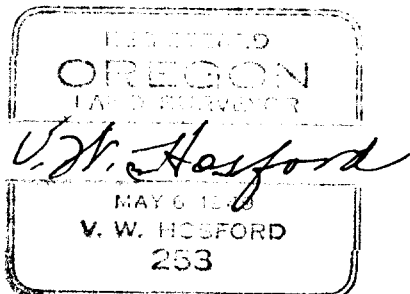 OREGON
LAND SURVEYOR
V. W. Hosford
MAY 6
V. W. HOSFORD
253